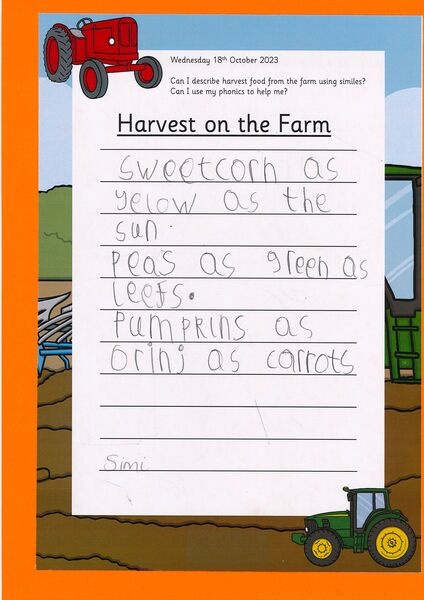 Wednesday 18th October 2023
Can I describe harvest food from the farm using similes?
Can I use my phonics to help me?
Harvest on the Farm
sweetcorn as
yelow as the
sun.
peas as green as
leefs.
Pumpkins as
orinj as carrots
Simi